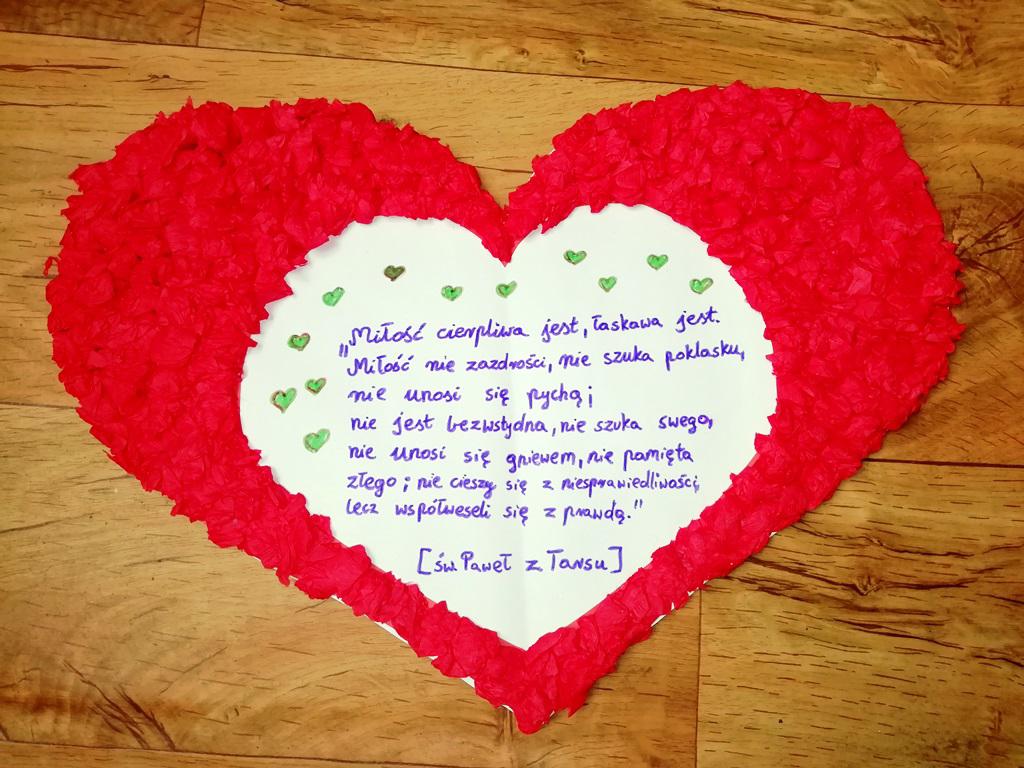 „Miłość cierpliwa jest, łaskawa jest.
Miłość nie zazdrości, nie szuka poklasku,
nie unosi się pychą;
nie jest bezwstydna, nie szuka swego,
nie unosi się gniewem, nie pamięta
złego; nie cieszy się z niesprawiedliwości,
lecz współweseli się z prawdą."
[św. Paweł z Tarsu]